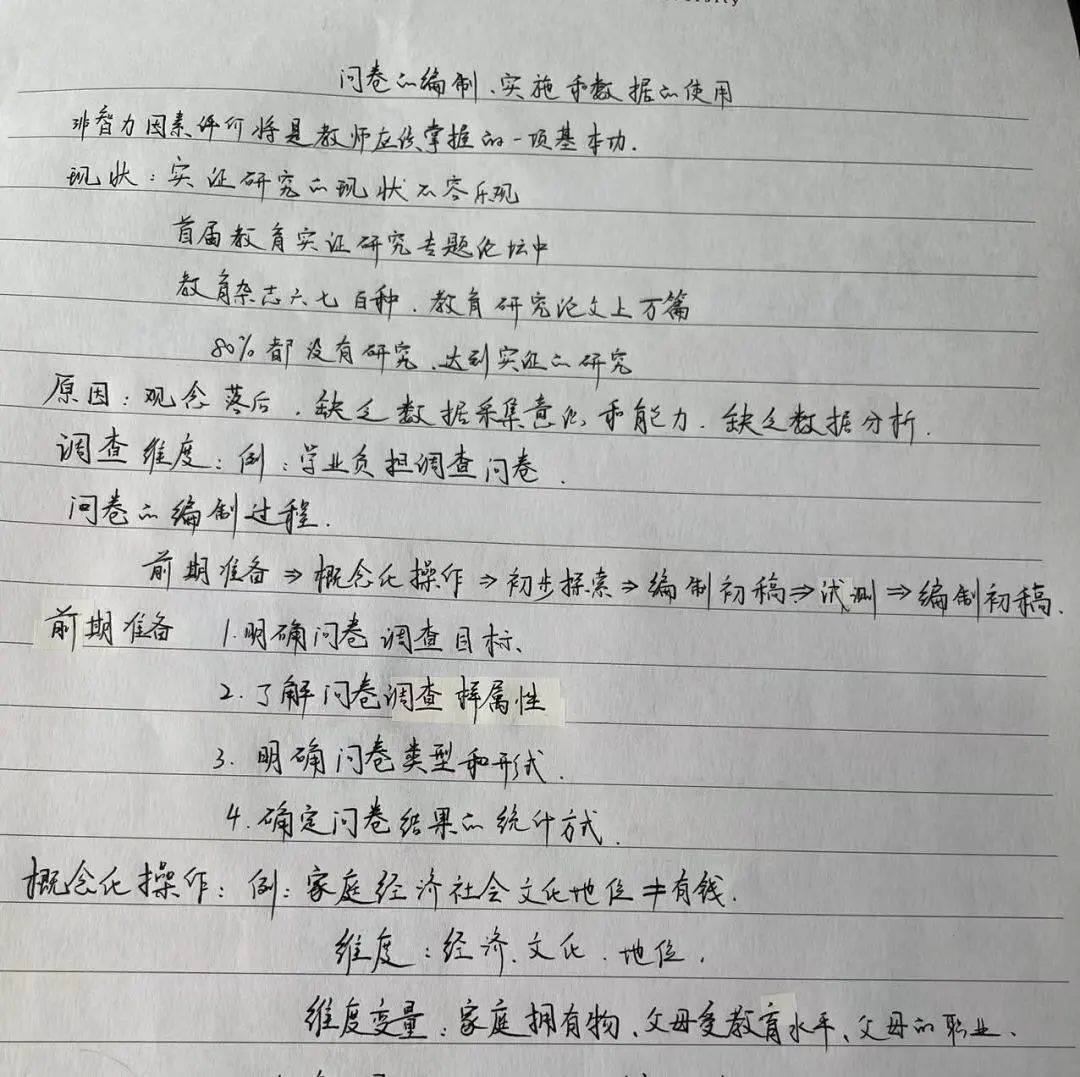 问卷的编制、实施和数据的使用
非智力因素评价将是教师应该掌握的一项基本功.
现状:实证研究的现状不容乐观
首届教育实证研究专题论坛中
教育杂志六七百种.教育研究论文上万篇
80%都没有研究、达到实证的研究
原因:观念落后、缺乏数据采集意识和能力.缺乏数据分析.
调查维度:例:学业负担调查问卷.
问卷的编制过程.
前期准备⇒概念化操作⇒初步探索⇒编制初稿⇒试测⇒编制初稿.
前期准备 1.明确问卷调查目标、
2.了解问卷调查样属性
3.明确问卷类型和形式.
4.确定问卷结果的统计方式.
概念化操作:例:家庭经济社会文化地位≠有钱.
维度:经济、文化、地位.
维度变量:家庭拥有物、父母受教育水平、父母的职业、